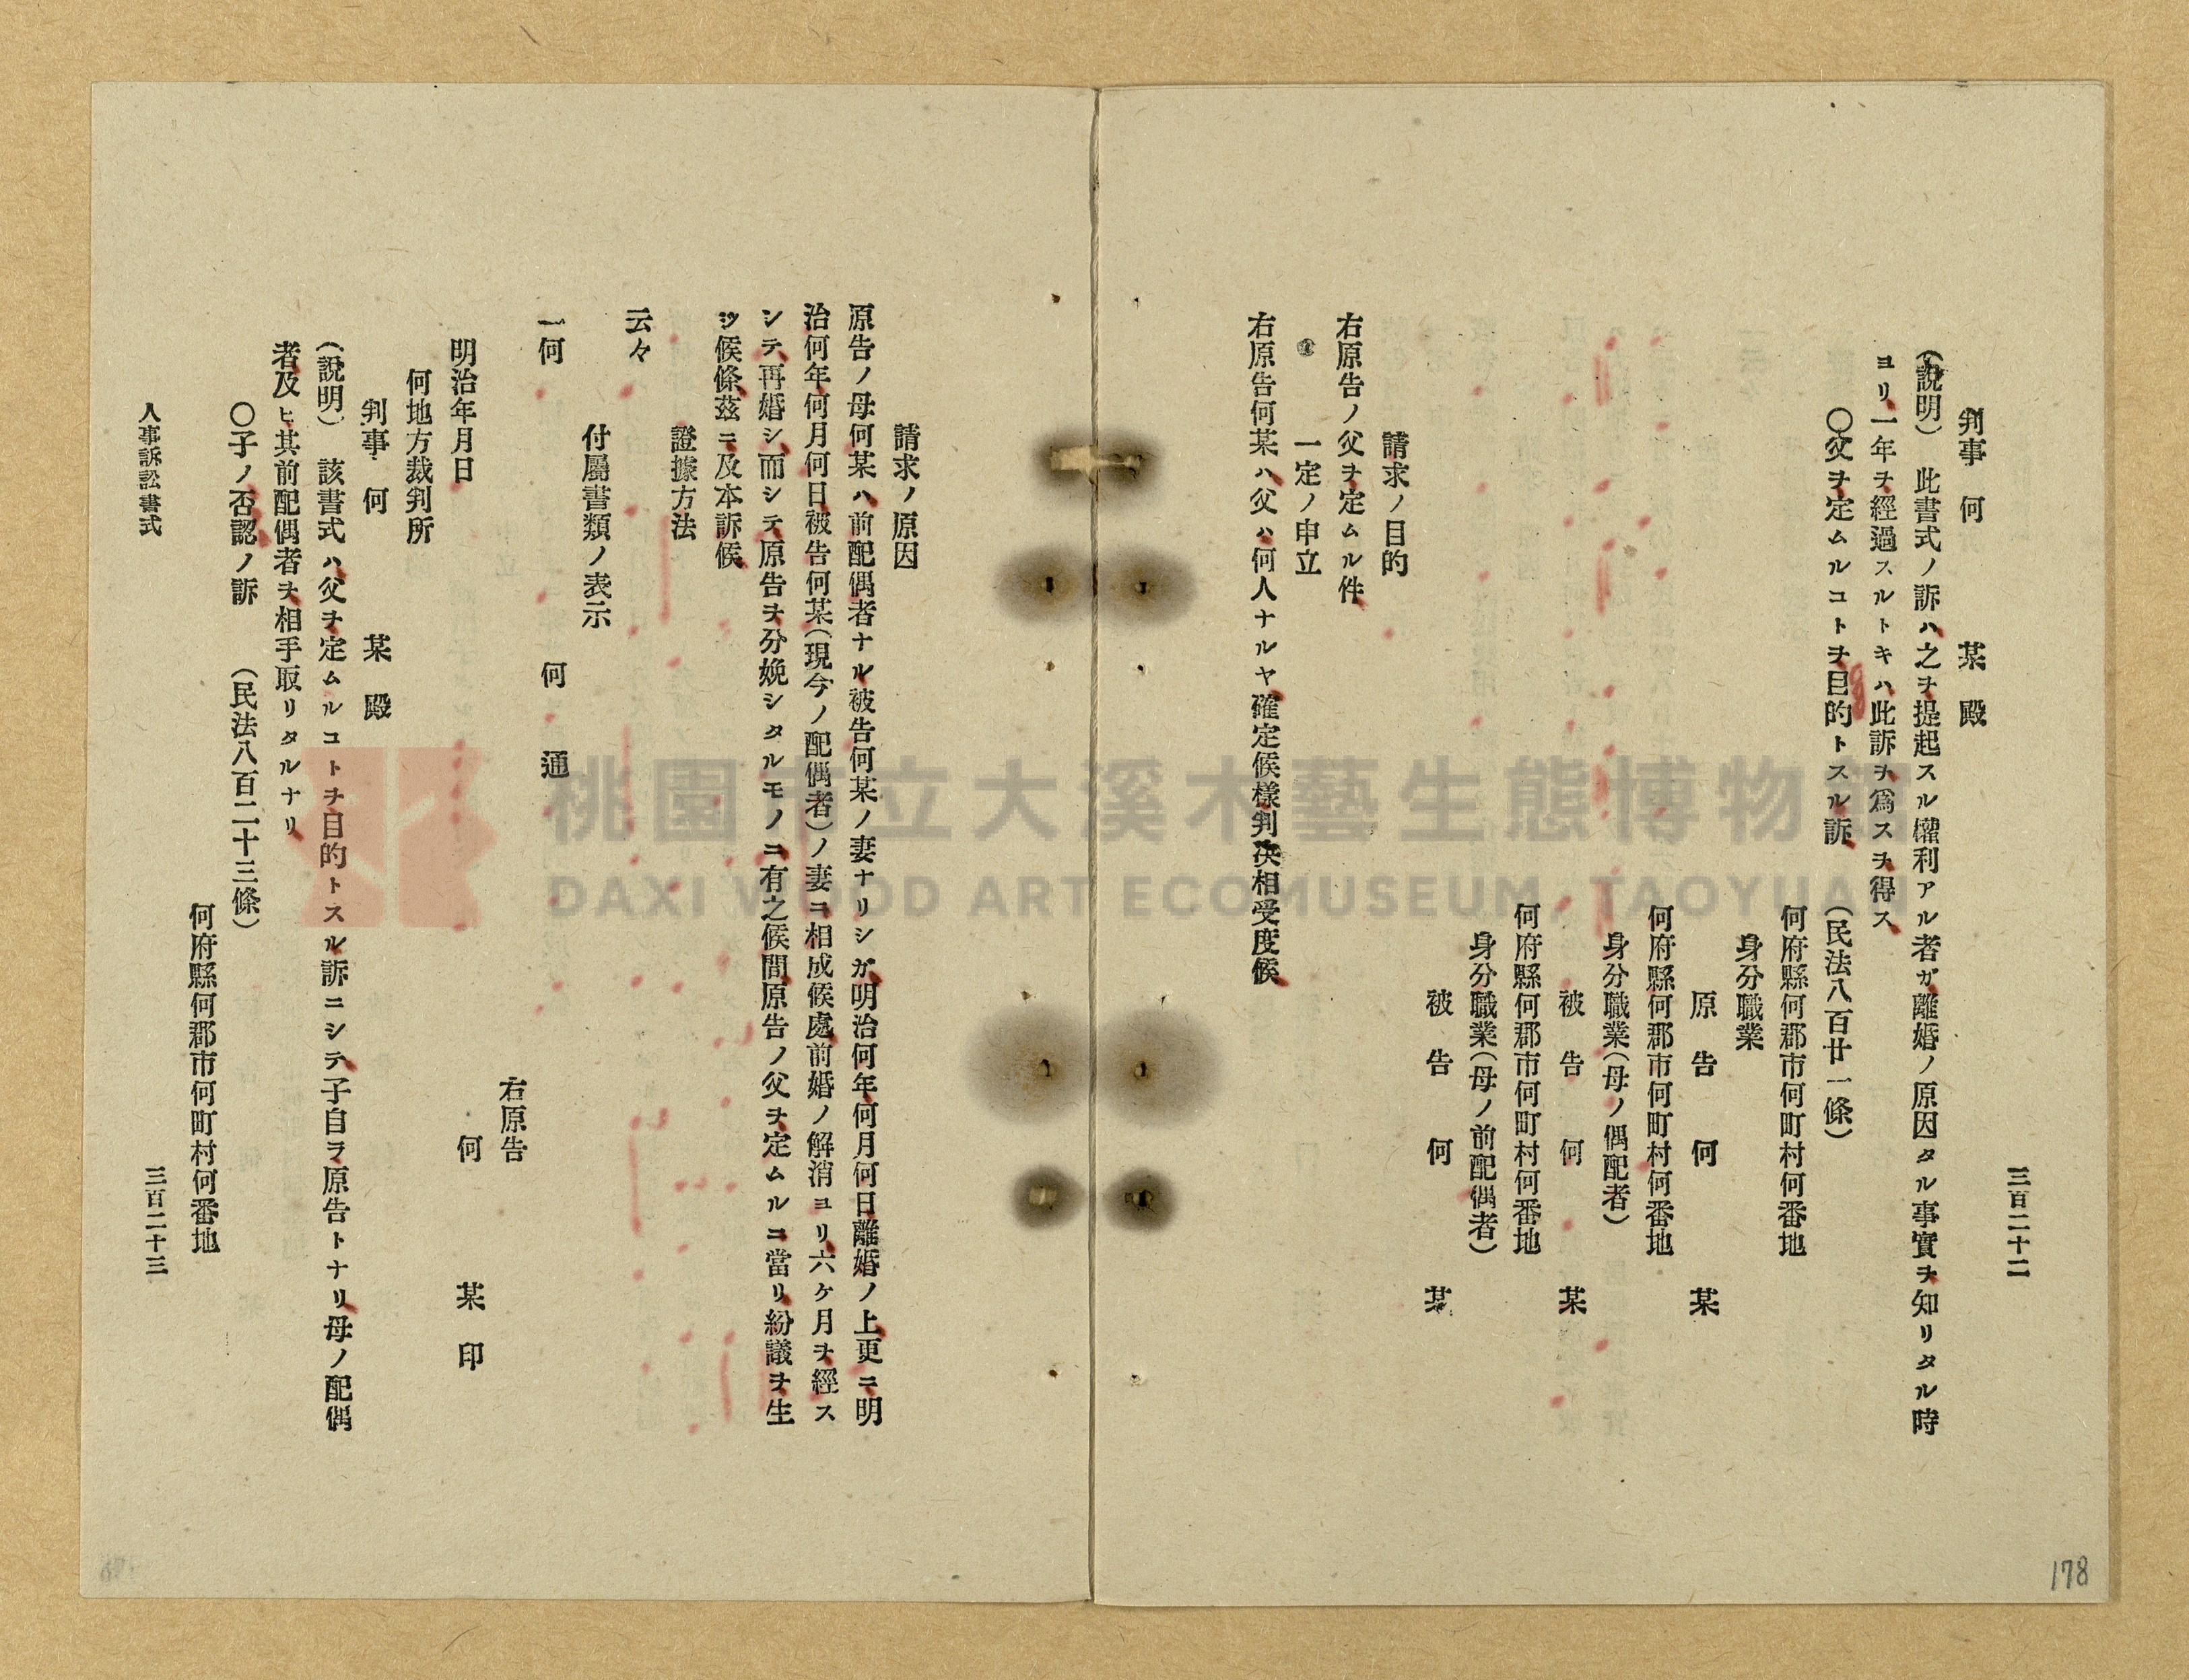 三百二十二
判事 何 某 殿
（說明） 此書式ノ訴ハ之ヲ提起スル權利アル者ガ離婚ノ原因タル事實ヲ知リタル時
ヨリ一年ヲ經過スルトキハ此訴ヲ爲スヲ得ス
〇父ヲ定ムルコトヲ目的トスル訴 （民法八百廿一條）
何府縣何郡市何町村何番地
身分職業
原告 何 某
何府縣何郡市何町村何番地
身分職業（母ノ偶配者）
被告 何 某
何府縣何郡市何町村何番地
身分職業（母ノ前配偶者）
被告 何 某
請求ノ目的
右原告ノ父ヲ定ムル件
一定ノ申立
右原告何某ハ父ハ何人ナルヤ確定候樣判决相受度候
請求ノ原因
原告ノ母何某ハ前配偶者ナル被告何某ノ妻ナリシガ明治何年何月何日離婚ノ上更ニ明
治何年何月何日被告何某（現今ノ配偶者）ノ妻ニ相成候處前婚ノ解消ヨリ六ケ月ヲ經ス
シテ再婚シ而シテ原告ヲ分娩シタルモノニ有之候間原告ノ父ヲ定ムルニ當リ紛議ヲ生
シ候條茲ニ及本訴候
證據方法
云々
付屬書類ノ表示
一何 何 通
右原告
何 某 印
明治年月日
何地方裁判所
判事 何 某 殿
（說明） 該書式ハ父ヲ定ムルコトヲ目的トスル訴ニシテ子自ラ原告トナリ母ノ配偶
者及ヒ其前配偶者ヲ相手取リタルナリ
〇子ノ否認ノ訴 （民法八百二十三條）
何府縣何郡市何町村何番地
人事訴訟書式 三百二十三
178
桃園市立大溪木藝生態博物館
DAXI WOOD ART ECOMUSEUM, TAOYUAN